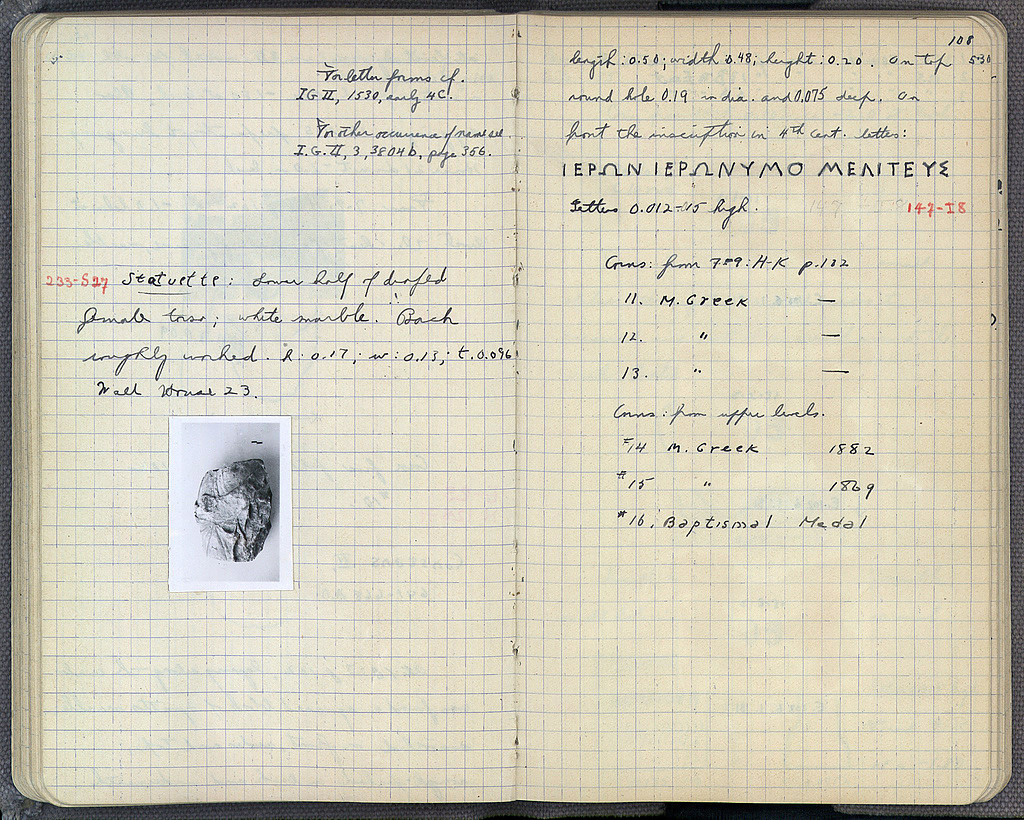 For letter forms cf.
IG II, 1530, early 4C.
For other occurrence of name see
I.G. II, 3, 3804b, page 356.
233-S27 Statuette: Lower half of draped
female torso; white marble. Back
roughly worked. h: 0.17; w: 0.13; t. 0.096
Wall House 23.
108
length: 0.50; width 0.48; height: 0.20. On top 530
round hole 0.19 in dia. and 0.075 deep. On
front the inscription in 4th cent. letters:
ΙΕΡΩΝ ΙΕΡΩΝΥΜΟ ΜΕΛΙΤΕΥΣ
Letters 0.012-15 high. 147-I8
Coins: from 789: H-K p. 132
11. M. Greek —
12. " —
13. " —
Coins: from upper levels.
#14 M. Greek 1882
#15 " 1869
#16. Baptismal Medal